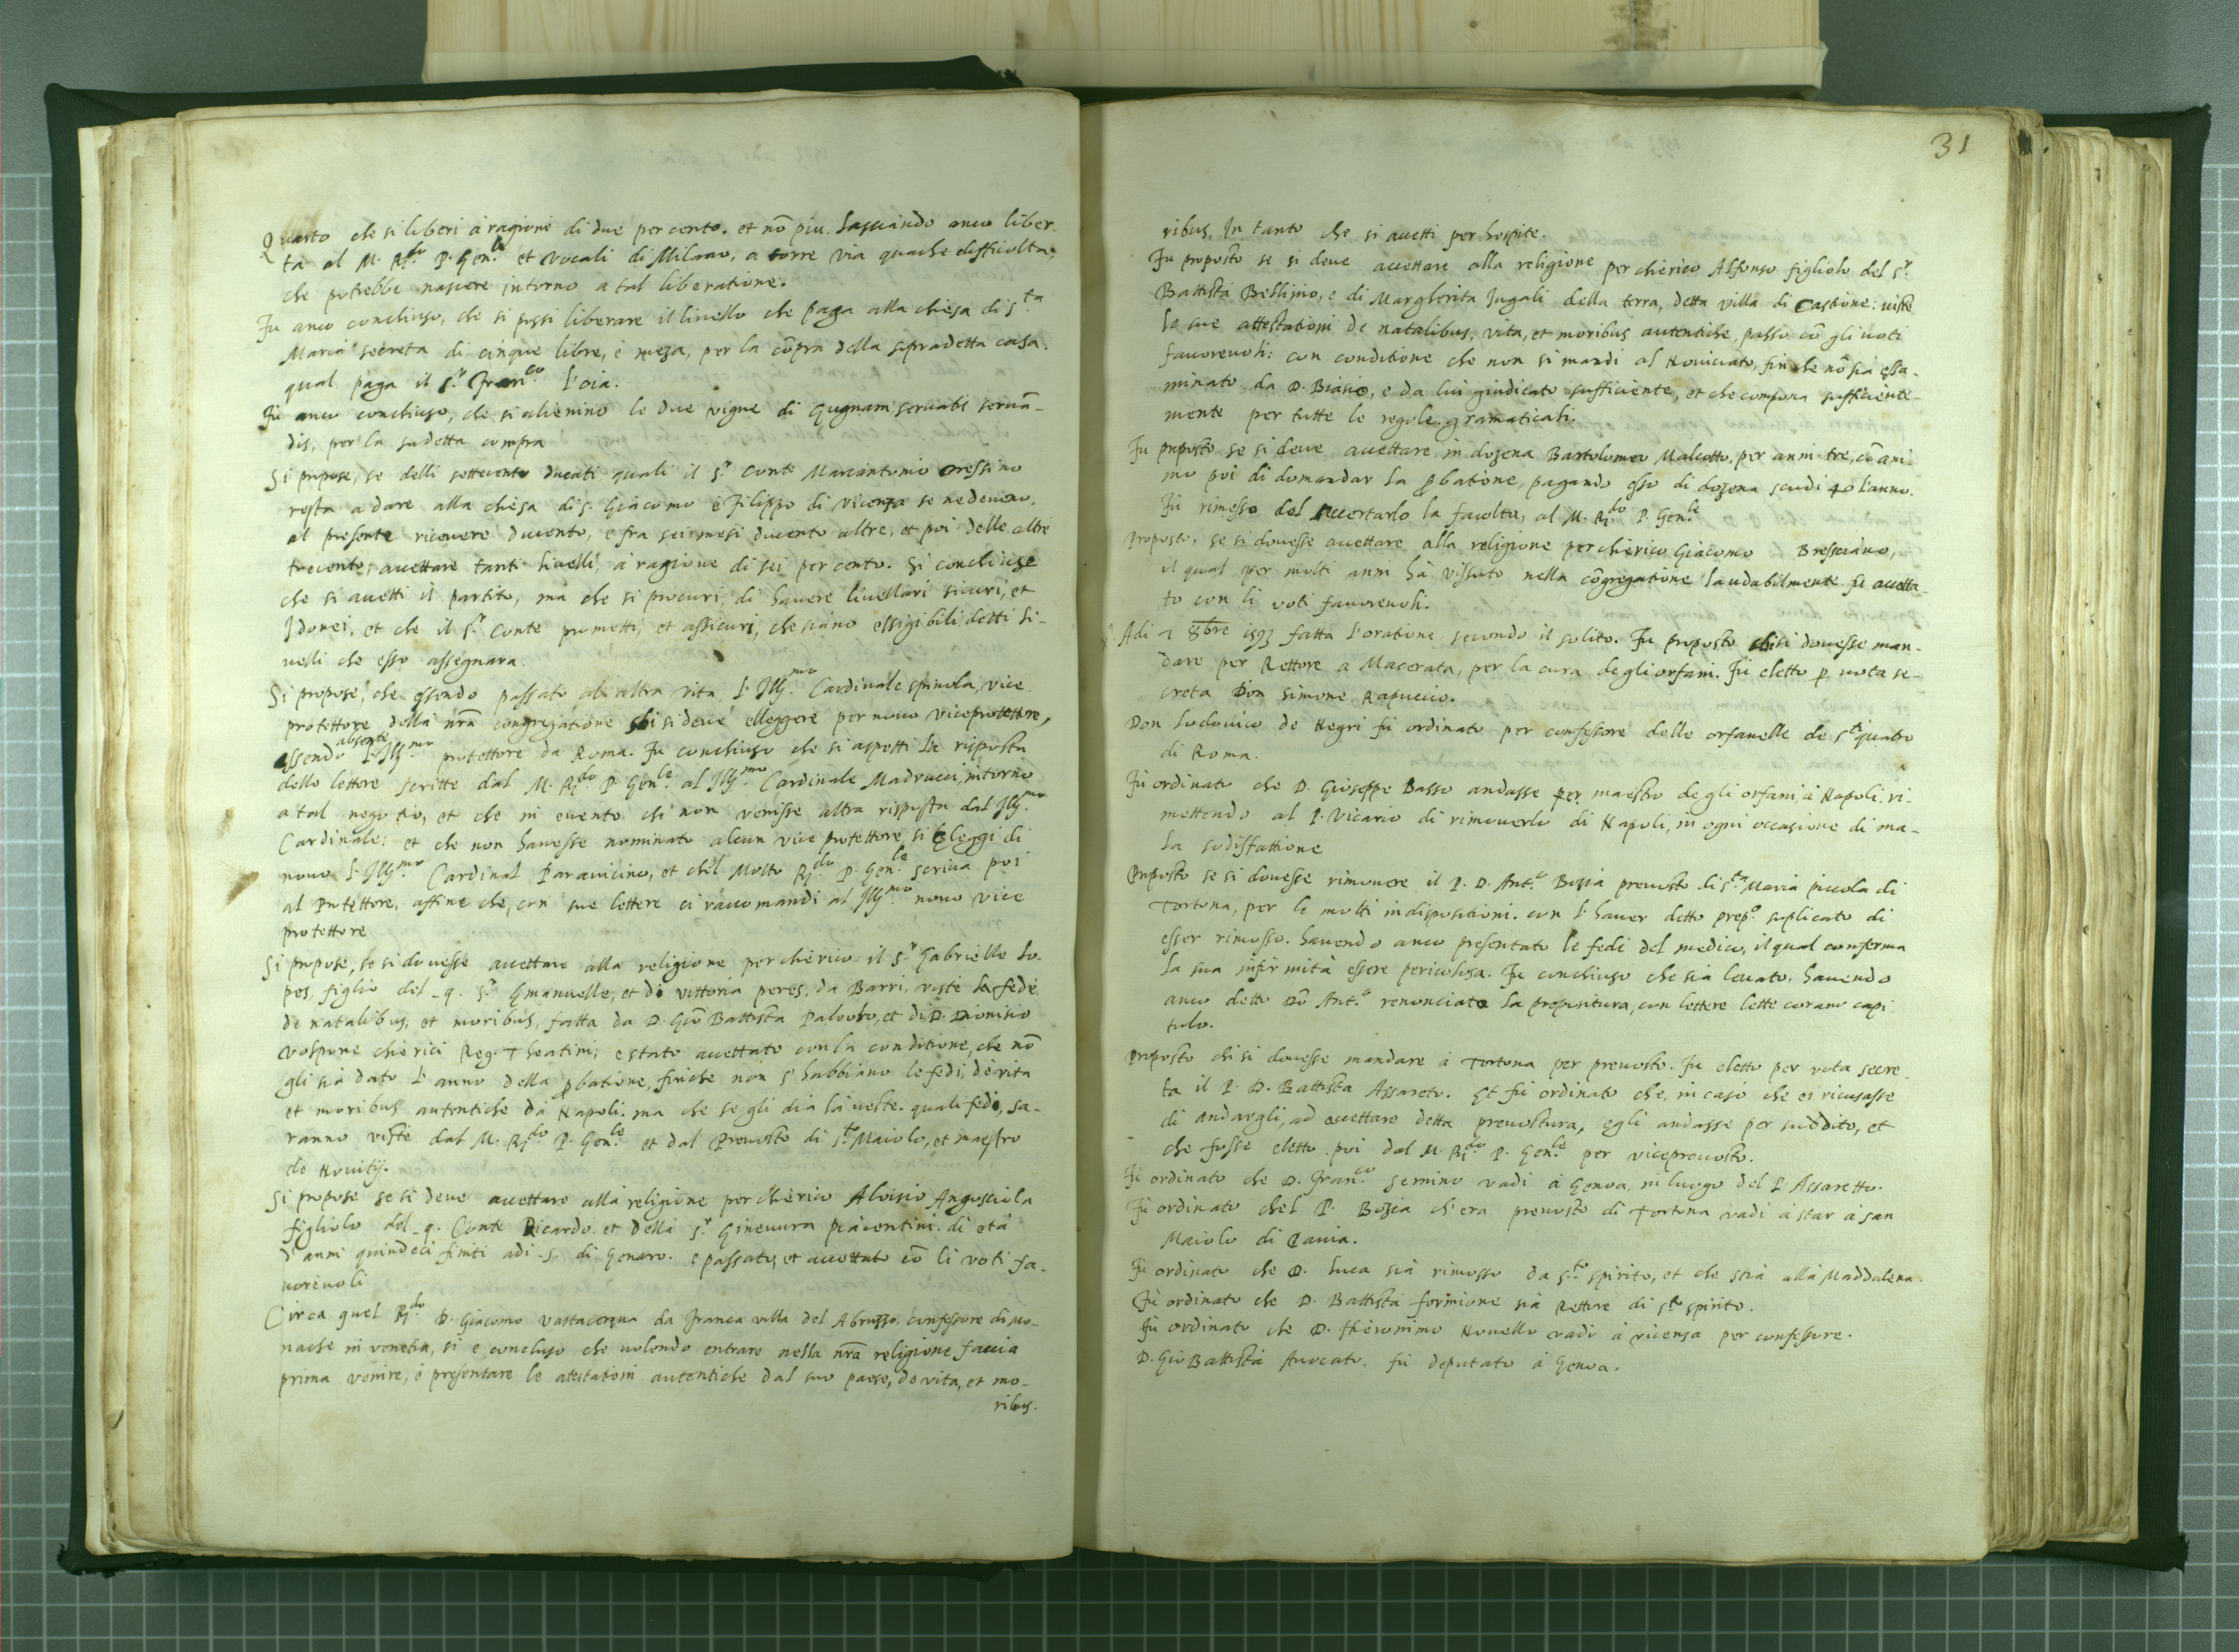 Quarto che si liberi à ragione di due per cento. et nõ piu. Lasciando anco liber-
tà al M. R.do P. Gen.le et vocali di Milano, a torre via qualche difficoltà,
che potrebbe nascere intorno a tal liberatione.
Fu anco conchiuso, che si possi liberare il livello che paga alla chiesa di S.ta
Maria secreta di cinque libre, e meza, per la cõpra della sopradetta casa.
qual paga il S.r Fran.co L'oia.
Fu anco conchiuso, che si alienino le due vigne di Gugnam servatis servã-
dis, per la sudetta compra
Si propose, se delli settecento ducati quali il S.r Conte Marcantonio
resta a dare alla chiesa di S. Giacomo e Filippo di Vicenza se ne devono,
al presente ricevere ducento, e fra sei mesi ducento altre, et poi delle altre
trecento, accettare tanti livelli, à ragione di sei per cento. Si conchiuse
che si accetti il partito, mà che si procuri, di havere livellari sicuri, et
Idonei, et che il S.r Conte prometti, et assicuri, che siano essigibili detti li-
velli che esso assegnara.
Si propose, che essendo passato al altra vita l'Ill.mo Cardinale spinola, vice
protettore della nrã congregatione chi si deve elleggere per novo viceprotettore,
essendo absente l'Ill.mo protettore da Roma. Fu conchiuso che si aspetti la risposta
delle lettere scritte dal M. R.do P. Gen.le al Ill.mo Cardinale Madrucci, intorno
a tal negotio, et che in evento chi non venisse altra risposta dal Ill.mo
Cardinale: et che non havesse nominato alcun vice protettore, si eleggi di
novo l'Ill.mo Cardinal Paravicino, et ch'il Molto R.do P. Gen.le scriva poi
al Protettore, affine che, con sue lettere ci raccomandi al Ill.mo novo vice
protettore
Si propose, se si dovesse accettare alla religione per chierico il S.r Gabrielle Lo-
pes, figlio del q. S.r Emanuelle, et di vittoria peres, da Barri, viste le fede
de natalibus, et moribus, fatta da D. Giõ Battista Palombo, et di D. Dionisio
Volpone chierici Reg. Theatini; e stato accettato con la conditione, che nõ
gli sia dato l'anno della ꝓbatione, finche non s'habbiano le fedi, de vita
et moribus autentiche da Napoli. ma che se gli dia la veste. quali fedi, sa-
ranno viste dal M. R.do P. Gen.le et dal Prevosto di S.to Maiolo, et maestro
de Novitij.
Si propose se si deve accettare alla religione per chierico Aloisio Angosciola
figliolo del q. Conte Ricardo. et della S.r Ginevura piacentini. di età
d'anni quindeci finiti adi 5. di Genaro. e passato, et accettato cõ li voti fa-
vorevoli
Circa quel R.do D. Giacomo vastacqua da Franca villa del Abruzzo. confessore di mo-
nache in venetia, si e concluso che volendo entrare nella nrã religione faccia
prima venire, e presentare le atestationi autentiche dal suo paese, de vita, et mo-
ribus.
31
ribus. In tanto che si accetti per hospite.
Fu proposto se si deve accettare alla religione per chierico Alfonso figliolo del S.r
Battista Bellijno, e di Margherita Jugali della terra, detta villa di Castione: viste
le sue attestationi de natalibus, vita, et moribus autentiche, passo cõ gli voti
favorevoli: con conditione che non si mandi al Noviciato, fin che nõ sia essa-
minato da D. Biasio, e da lui giudicato sufficiente, et che compona sufficiente-
mente per tutte le regole gramaticali.
Fu proposto se si deve accettare in dozena Bartolomeo Malcotto, per anni tre, cõ ani-
mo poi di domandar la ꝓbatione, pagando esso di dozena scudi 40 l'anno.
Fu rimesso del accertarlo la facolta, al M. R.do P. Gen.le
Proposto, se si dovesse accettare alla religione per chierico Giacomo Bressciano,
il qual per molti anni hà vissuto nella cõgregatione laudabilmente fu accetta-
to con li voti favorevoli.
Adi 2 8bre 1593 fatta l'oratione secondo il solito. Fu proposto chi si dovesse man-
dare per Rettore a Macerata, per la cura degli orfani. Fu eletto ꝑ vota se-
creta Don Simone Rapuccio.
Don Lodovico de Negri fu ordinato per confessore delle orfanelle de S.ti quatro
di Roma.
Fu ordinato che D. Gioseppe Basso andasse per maestro degli orfani, à Napoli, ri-
mettendo al P. Vicario di rimoverlo di Napoli, in ogni occasione di ma-
la sodisfattione
Proposto se si dovesse rimovere il P. D. Ant.o Bozia prevosto di S.ta Maria piccola di
Tortona, per le molti indispositioni. con l'haver detto prep.o suplicato di
esser rimosso. havendo anco presentato le fedi del medico, il qual conferma
la sua infirmità essere pericolosa. Fu conchiuso che sia levato. havendo
anco detto Dõ Ant.o renonciato la prepositura, con lettere lette corano capi-
tulo.
Proposto chi si dovesse mandare à Tortona per prevosto. Fu eletto per vota secre-
ta il P. D. Battista Assareto. Et fu ordinato che, in caso che ei ricusasse
di andargli, ad accettare detta prevostura, egli andasse per suddito, et
che fosse eletto poi dal M. R.do P. Gen.le per viceprevosto.
Fu ordinato che D. Fran.co Semino vadi à Genoa, in luogo del P. Assaretto.
Fu ordinato chel P. Bozia ch'era prevosto di Tortona vadi à star à san
Maiolo di Pavia.
Fu ordinato che D. Luca sia rimosso da S.to Spirito, et che stia alla Maddalena.
Fu ordinato che D. Battista formione sia Rettore di S.to Spirito.
Fu ordinato che D. Hieronimo Novello vadi à vicenza per confessore.
D. Gio Battista Avocato. fu deputato à Genoa.